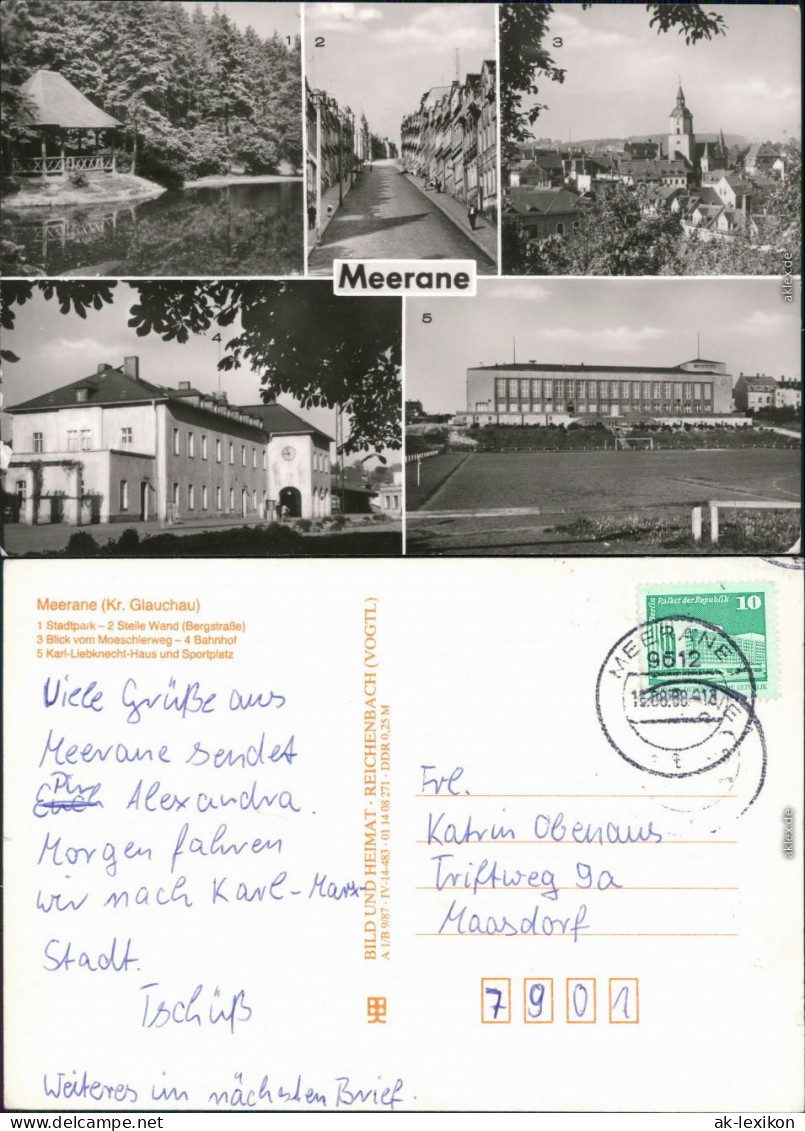 1
2
3
Meerane
4
5
Meerane (Kr. Glauchau)
1 Stadtpark – 2 Steile Wand (Bergstraße)
3 Blick vom Moeschlerweg – 4 Bahnhof
5 Karl-Liebknecht-Haus und Sportplatz
Viele Grüße aus
Meerane sendet
Dir Alexandra.
Morgen fahren
wir nach Karl-Marx-
Stadt.
Tschüß
Weiteres im nächsten Brief.
BILD UND HEIMAT · REICHENBACH (VOGTL)
A 1/B 9/87 · IV-14-483 · 01 14 08 271 · DDR 0,25 M
Palast der Republik 10
MEERANE
9612
Frl.
Katrin Obenaus
Triftweg 9a
Maasdorf
7901
aklex.de
aklex.de
www.delcampe.net
ak-lexikon